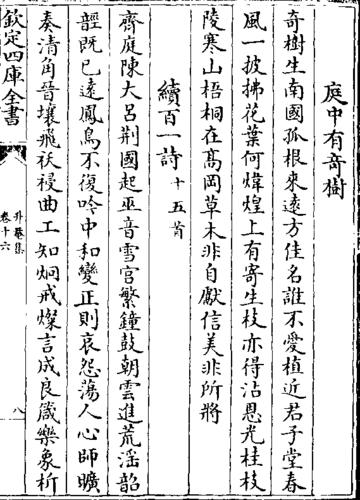 庭中有奇樹
奇樹生南國孤根來遠方佳名誰不愛植近君子堂春
風一披拂花葉何煒煌上有寄生枝亦得沾恩光桂枝
陵寒山梧桐在高岡草木非自獻信美非所將
續百一詩十五首
齊庭陳大呂荆國起巫音雪宮繁鐘鼓朝雲進荒淫韶
䪫既已遠鳳鳥不復吟中和變正則哀怨蕩人心師曠
奏清角晉壤飛祅祲曲工知炯戒燦言成良箴樂象析
欽定四庫全書
升菴集
卷十六
八